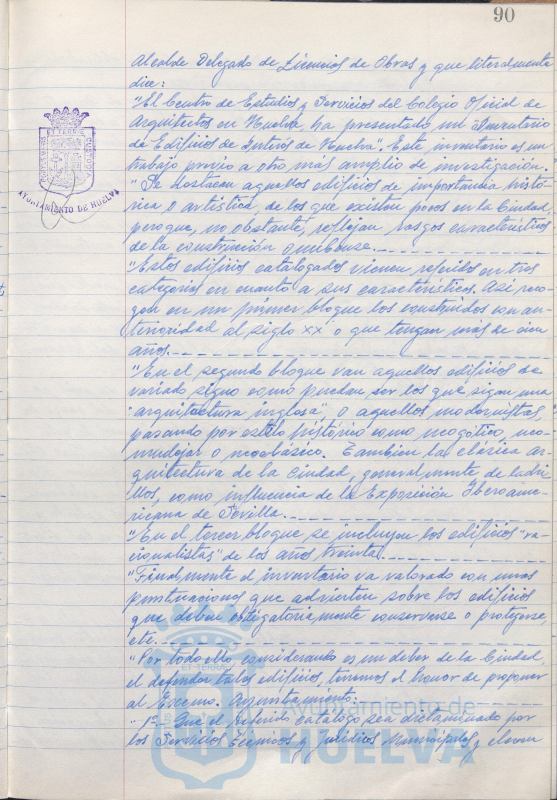 90
Alcalde Delegado de Licencias de Obras y que literalmente
dice:
"El Centro de Estudios y Servicios del Colegio Oficial de
Arquitectos en Huelva, ha presentado un "Inventario
de Edificios de Interes de Huelva". Este inventario es un
trabajo previo a otro más amplio de investigación.
"Se destacan aquellos edificios de importancia histó-
rica o artística, de los que existen pocos en la Ciudad
pero que, no obstante, reflejan rasgos característicos
de la construcción onubense.
"Estos edificios catalogados vienen referidos en tres
categorías en cuanto a sus características. Asi reco-
gen en un primer bloque los construidos con an-
terioridad al siglo XX o que tengan más de cien
años.
"En el segundo bloque van aquellos edificios de
variado signo como puedan ser los que sigan una
"arquitectura inglesa", o aquellos modernistas,
pasando por estilo histórico como neogótico, neo-
mudejar o neobasico. Tambien la clásica ar-
quitectura de la ciudad, generalmente de ladri-
llos, como influencia de la Exposición Iberoame-
ricana de Sevilla.
"En el tercer bloque se incluyen los edificios "ra-
cionalistas" de los años treinta.
"Finalmente el inventario va valorado con unas
puntuaciones que advierten sobre los edificios
que deben obligatoriamente conservarse o protegerse,
etc.
"Por todo ello considerando es un deber de la Ciudad,
el defender tales edificios, tenemos el honor de proponer
al Excmo. Ayuntamiento:
"1º- Que el referido catálogo sea dictaminado por
los Servicios Técnicos y Jurídicos Municipales y eleven
AYUNTAMIENTO DE HUELVA
Ayuntamiento de
HUELVA